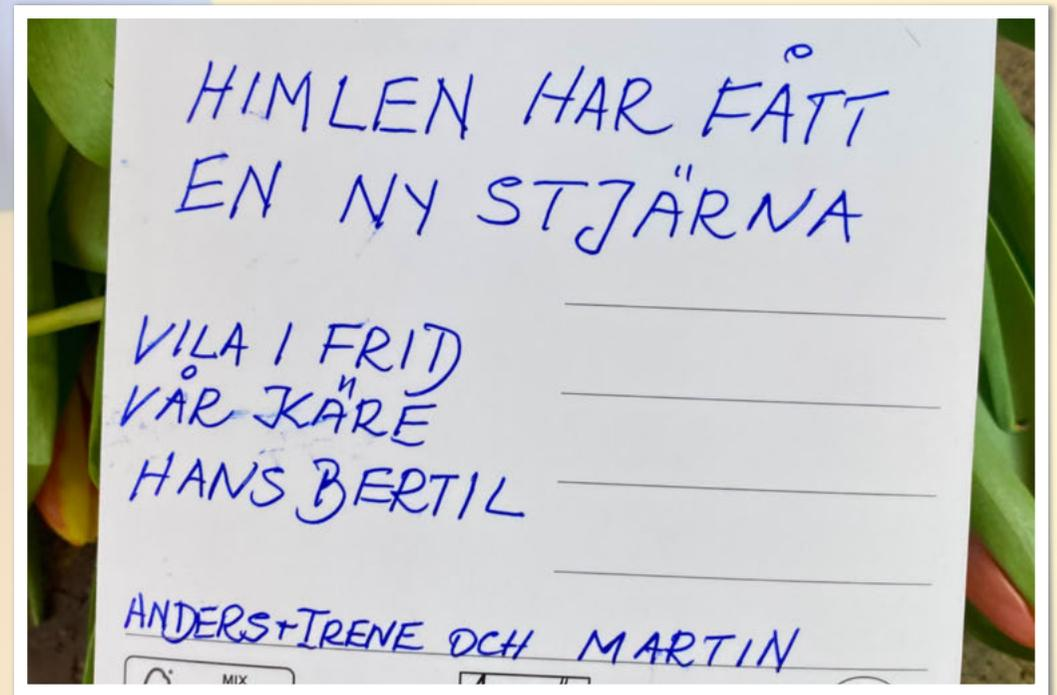 HIMLEN HAR FÅTT
EN NY STJÄRNA
VILA I FRID
VÅR KÄRE
HANS BERTIL
ANDERS+IRENE OCH MARTIN
MIX